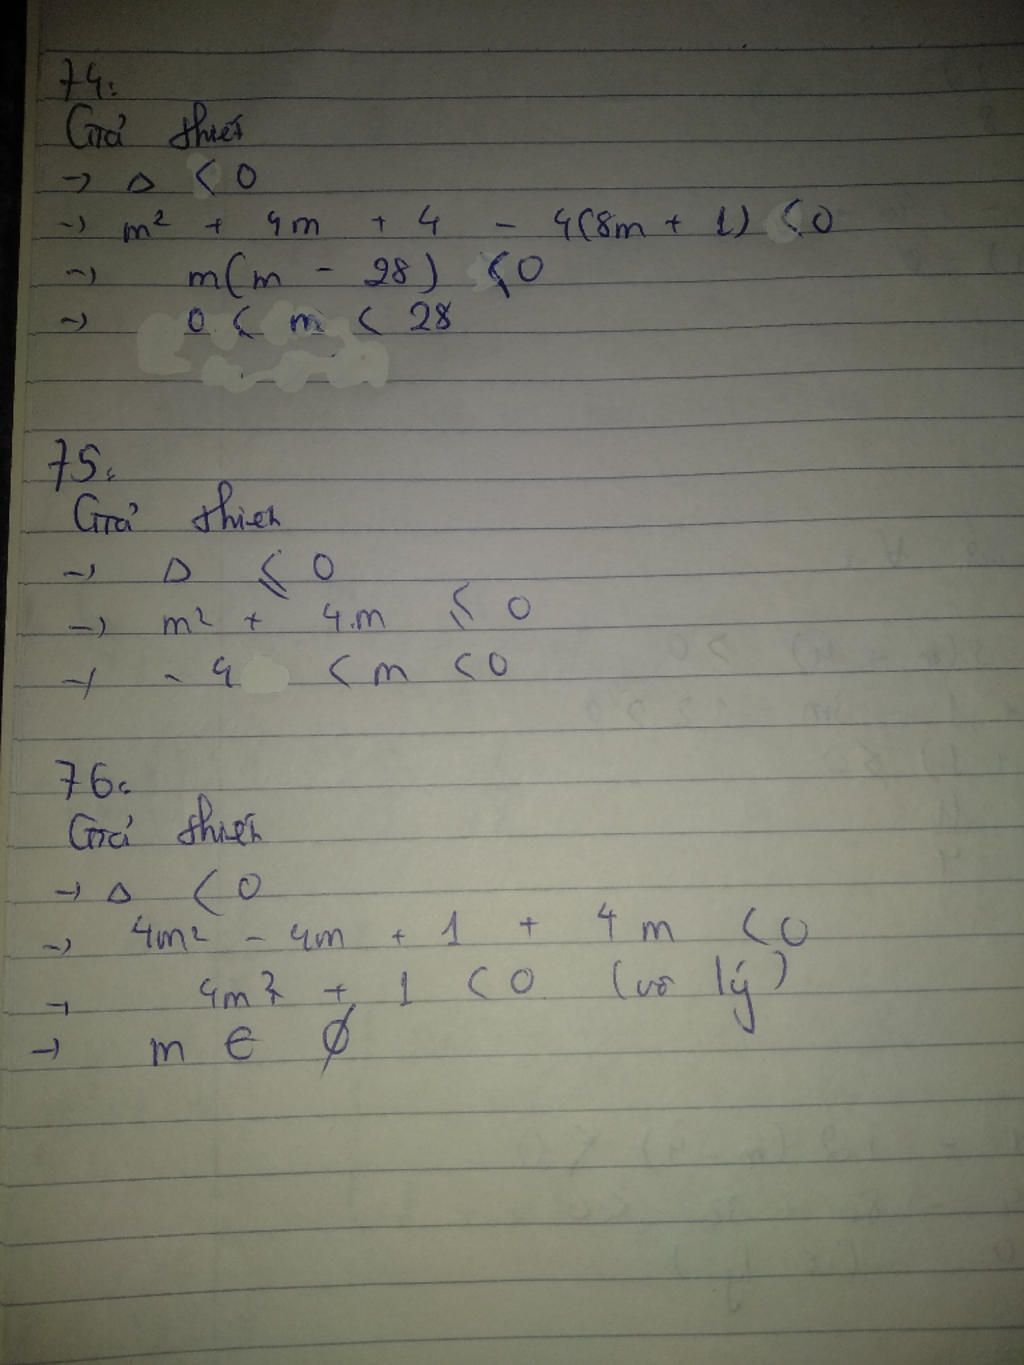 74:
Giả thiết
→ Δ < 0
→ m² + 4m + 4 - 4(8m + 1) < 0
→ m(m - 28) < 0
→ 0 < m < 28
75:
Giả thiết
→ Δ ≤ 0
→ m² + 4m ≤ 0
→ -4 < m < 0
76:
Giả thiết
→ Δ < 0
→ 4m² - 4m + 1 + 4m < 0
→ 4m² + 1 < 0 (vô lý)
→ m ∈ ∅